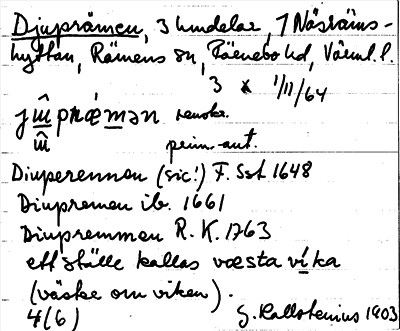 Djuprämen, 3 hundelar, 1 Näsräms-
hyttan, Rämens sn, Fäenebo hd, Värml. l.
3 x 1/11/64
prim. aut.
Diuperennen (sic!) F. Sst 1648
Diupremen ib. 1661
Diupremmen R. K. 1763
ett ställe kallas væsta víka
(västre om viken).
4(6) G. Kallstenius 1903